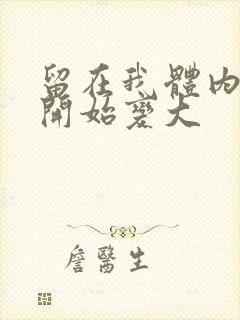 留在我體內
開始變大
詹醫生